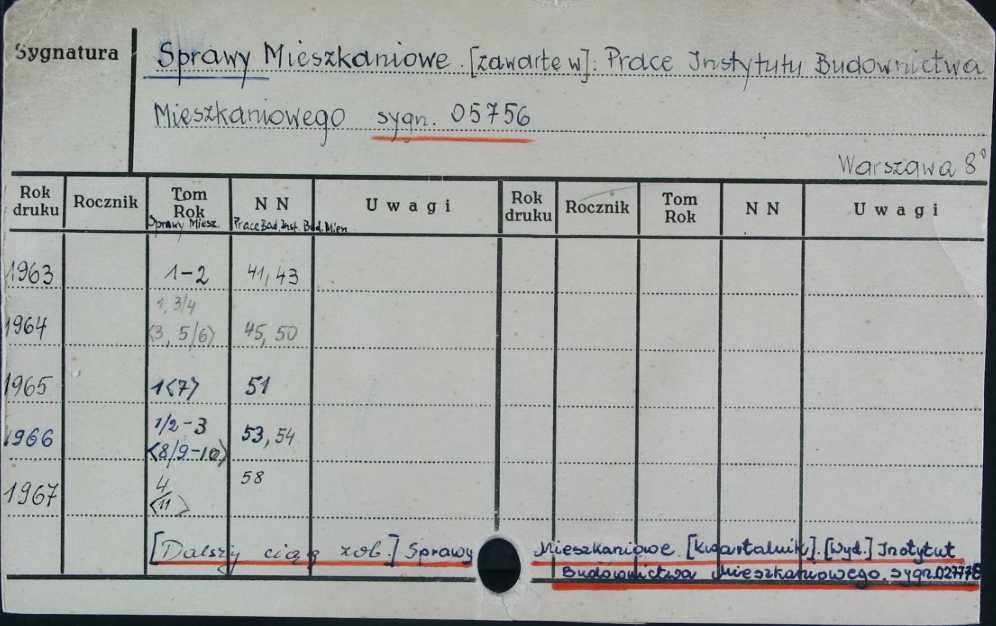 Sygnatura
Sprawy Mieszkaniowe. [zawarte w]: Prace Instytutu Budownictwa
Mieszkaniowego sygn. 05756
Warszawa 8°
Rok druku Rocznik Tom Rok N N Uwagi Rok druku Rocznik Tom Rok N N Uwagi
Sprawy Miesz. Prace Bad. Inst. Bud. Mien.
1963 1-2 41, 43
1, 3/4
1964 <3, 5/6> 45, 50
1965 1<7> 51
1966 1/2-3 53, 54
<8/9-10>
1967 4 58
<11>
[Dalszy ciąg zob.] Sprawy Mieszkaniowe. [Kwartalnik]. [Wyd.] Instytut
Budownictwa Mieszkaniowego. sygn. 027778